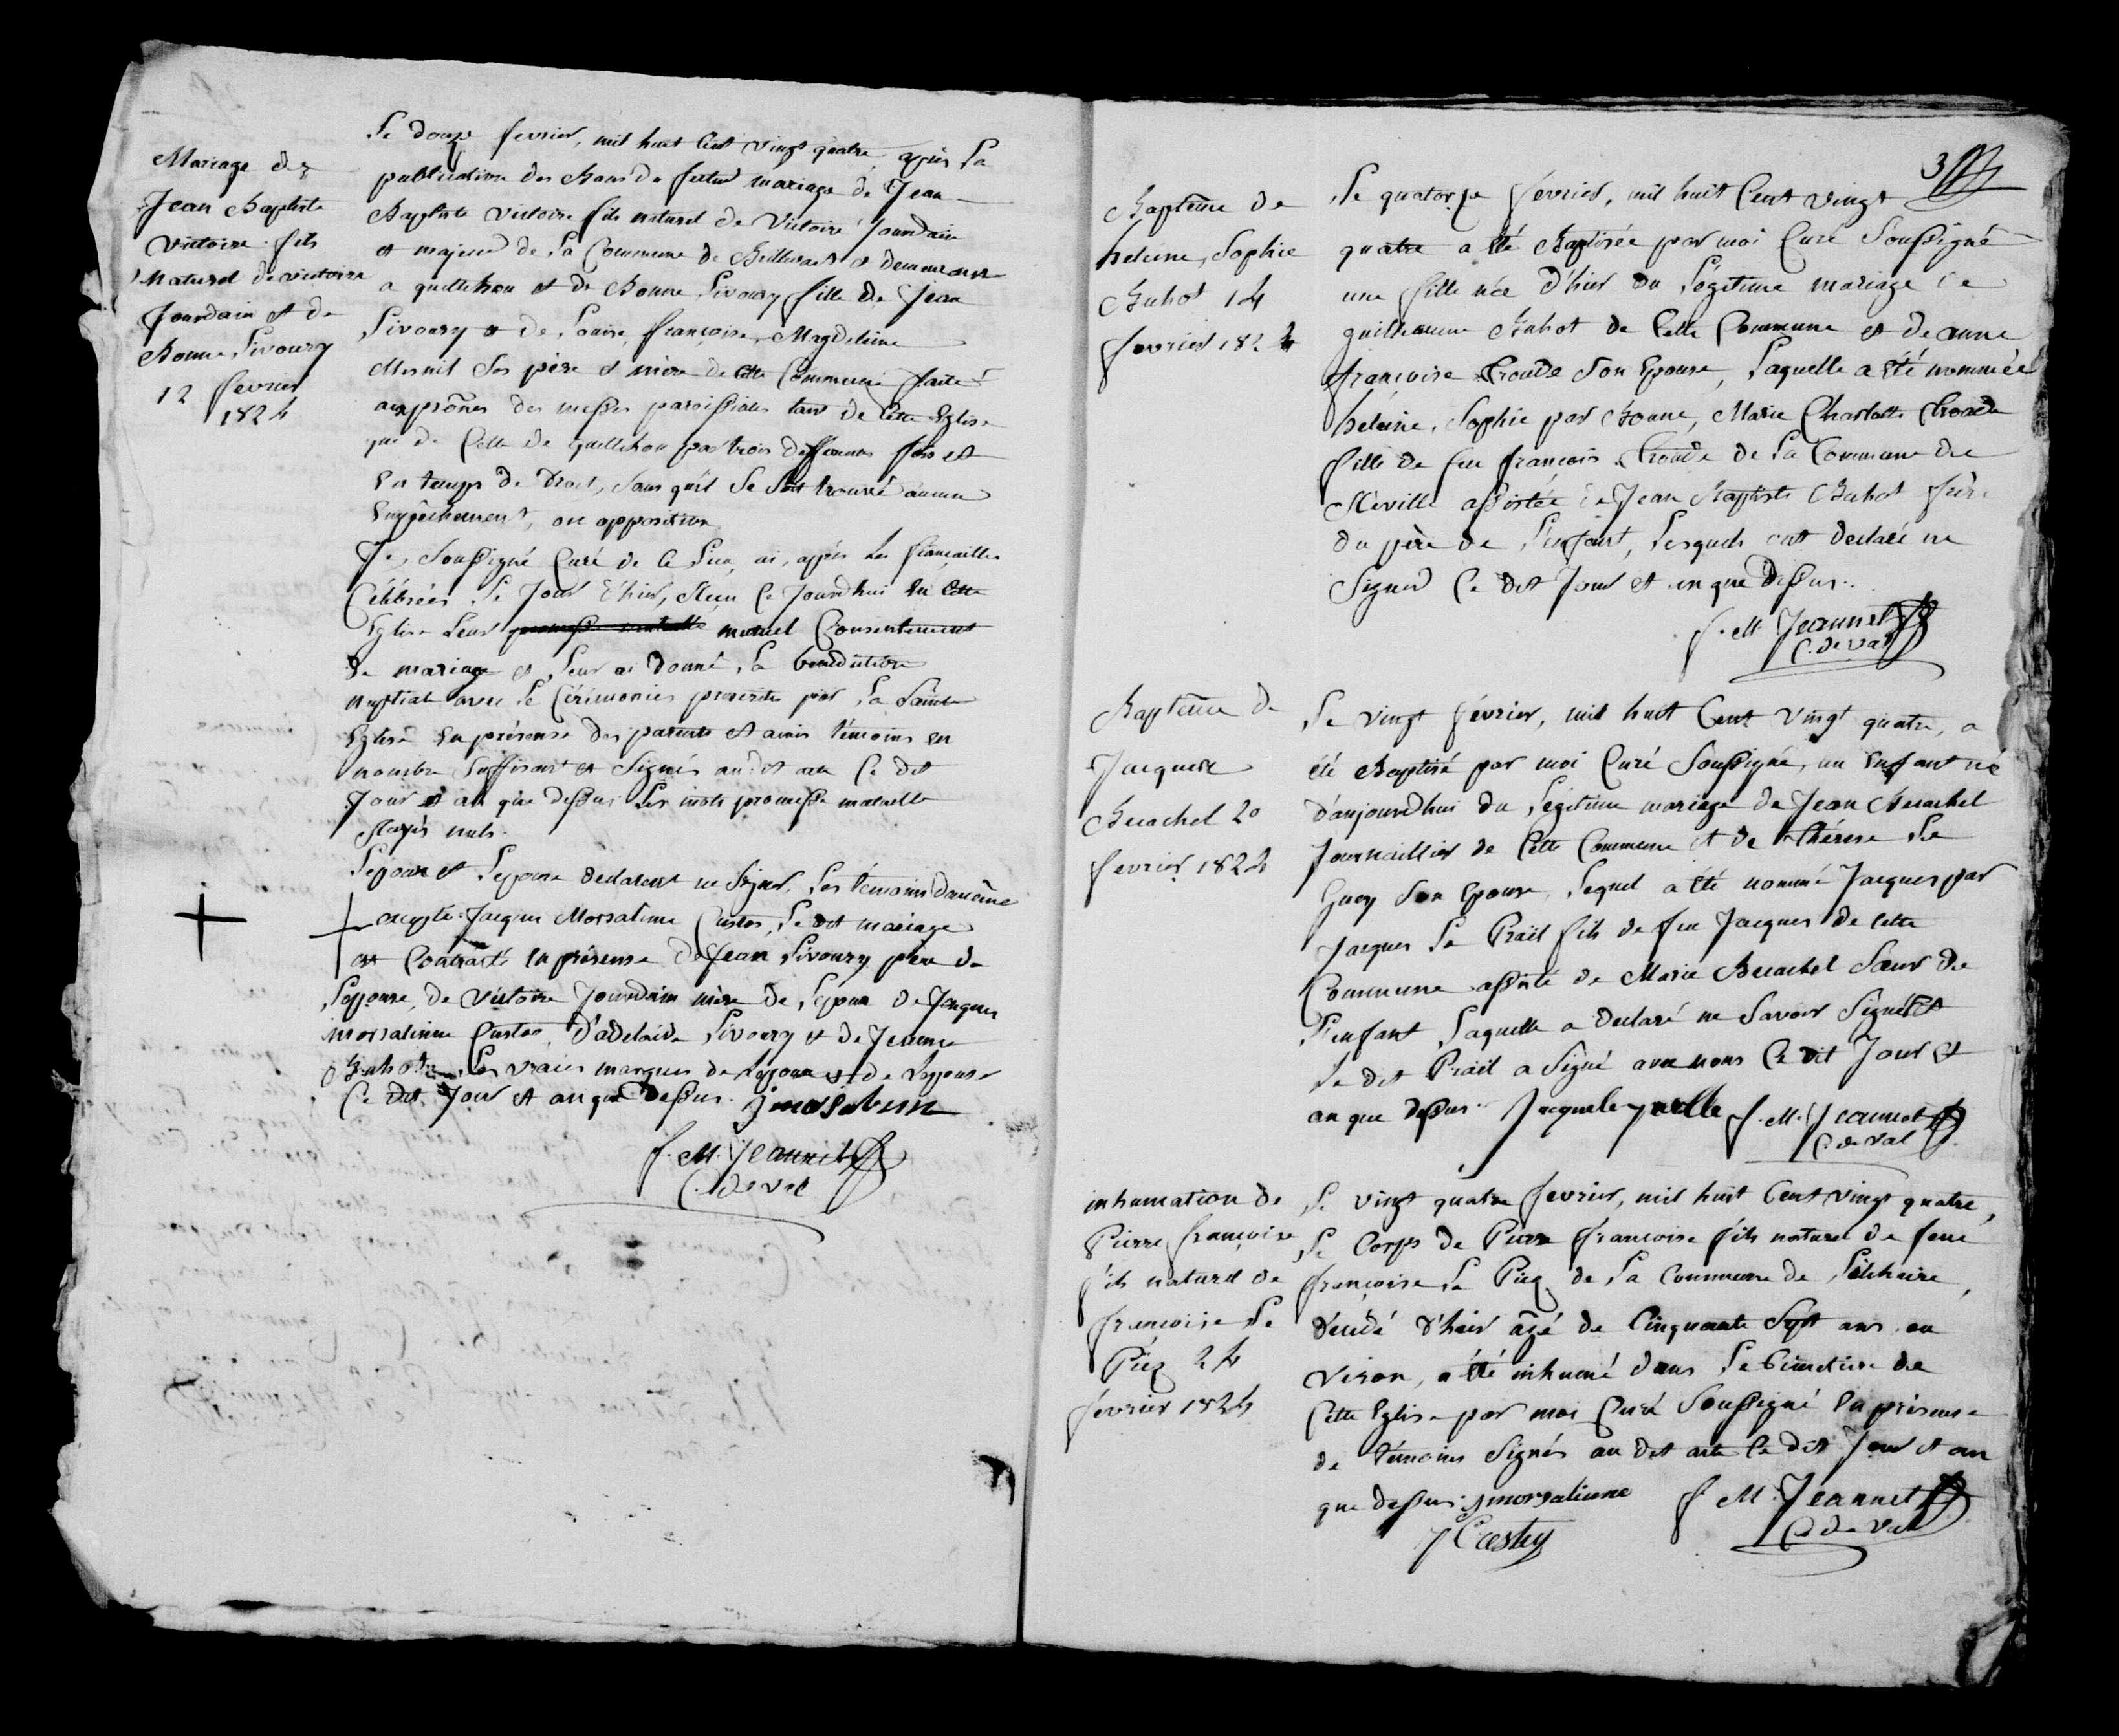 Mariage de
Jean Baptiste
Victoire fils
naturel de victoire
Jourdain et de
Bonne Sivoury
12 fevrier
1824
Le douze fevrier, mil huit Cent vingt quatre, après la
publication des Bans du futur mariage de Jean
Baptiste Victoire fils naturel de Victoire Jourdain
et majeur de la Commune de et demeurant
a quettehou et de Bonne Sivoury fille de Jean
Sivoury et de Louise, françoise, Magdeleine
Mesnil ses père et mère de cette Commune faite
aux prônes des messes paroissiales tant de Cette Eglise
que de Celle de quettehou par trois differentes fois et
En temps de Droit, sans qu'il se soit trouvé aucun
Empêchement, ou opposition
Je, soussigné Curé de Ce Lieu, ai, après les fiançailles
Célébrées le Jour d'hier, Reçu Ce Jourd'hui En Cette
Eglise Leur promesse mutuelle mutuel Consentement
de mariage et leur ai donné la benediction
nuptiale avec le Cérémonies prescrites par la Sainte
Eglise En présense des parents et amis témoins en
nombre suffisant et signés au dit acte Ce dit
Jour et an que dessus Les mots promesse mutuelle
Rayés nuls.
L'epoux et L'epouse declarent ne signer, Les témoins
excepté Jacques Morsaline Custos, Le dit mariage
est Contracté En présense de Jean Sivoury père de
L'epouse, de Victoire Jourdain mère de L'epoux de Jacques
morsaline Custos, D'adelaide Sivoury et de Jeanne
Buhot Les vraies marques de L'epoux et de L'epouse
Ce dit Jour et an que Dessus. j morsalinne
f. M. Jeannet
C. de val
3
Baptême de
heleine, Sophie
Buhot 14
fevrier 1824
Le quatorze fevrier, mil huit Cent vingt
quatre a été Baptisée par moi Curé Soussigné
une fille née d'hier du Légitime mariage de
guillaume Buhot de Cette Commune et de anne
françoise Croude son Epouse, Laquelle a été nommée
heleine, Sophie par Bonne, Marie Charlotte Croude
fille de feu françois Croude de La Commune de
Réville assistée de Jean Baptiste Buhot frère
du père de L'enfant, Lesquels ont declaré ne
signer Ce dit Jour et an que Dessus.
f. M. Jeannet
C. de val
Baptême de
Jacques
Beuchel 20
fevrier 1824
Le vingt février, mil huit Cent vingt quatre, a
été Baptisé par moi Curé Soussigné, un Enfant né
d'aujourdhui du Légitime mariage de Jean Beuchel
Journaillier de Cette Commune et de thérese Le
Guay son Epouse, Lequel a été nommé Jacques par
Jacques Le Prail fils de feu Jacques de Cette
Commune assisté de Marie Beuchel Sœur de
L'enfant Laquelle a declaré ne savoir signer Et
Le dit Prail a signé avec nous Ce dit Jour et
an que dessus. f. M. Jeannet
C. de val
inhumation de
Pierre françoise
fils naturel de
françoise Le
Piez 24
fevrier 1824
Le vingt quatre fevrier, mil huit Cent vingt quatre,
Le Corps de Pierre françoise fils naturel de feue
françoise Le Piez de La Commune de
décédé d'hier âgé de Cinquante Sept ans en
viron, a été inhumé dans Le Cimetiere de
Cette Eglise par moi Curé Soussigné En présense
de témoins signés au dit acte Ce dit Jour et an
que dessus. j morsalinne f M. Jeannet
C. de val